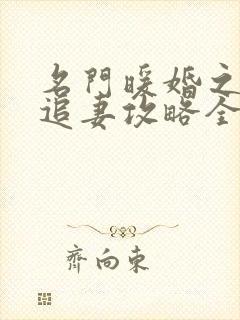 名門暖婚之
追妻攻略全
齊向東